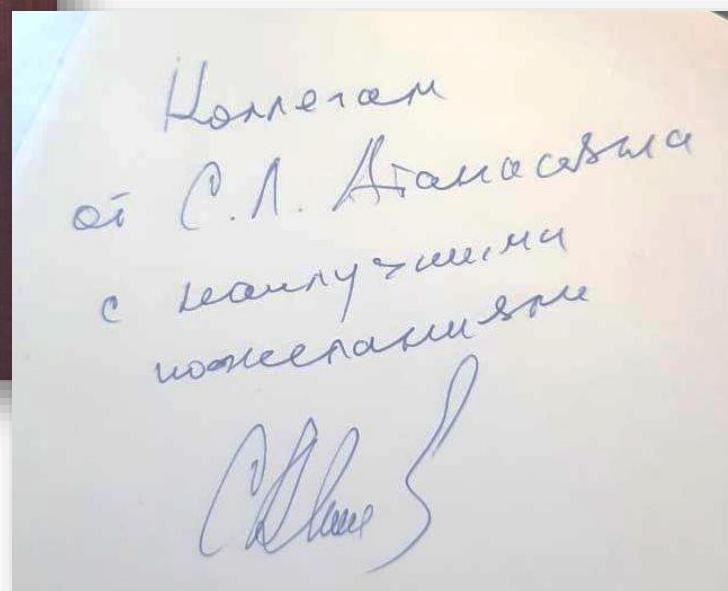 Коллегам
от С.Л. Атанасяна
с наилучшими
пожеланиями